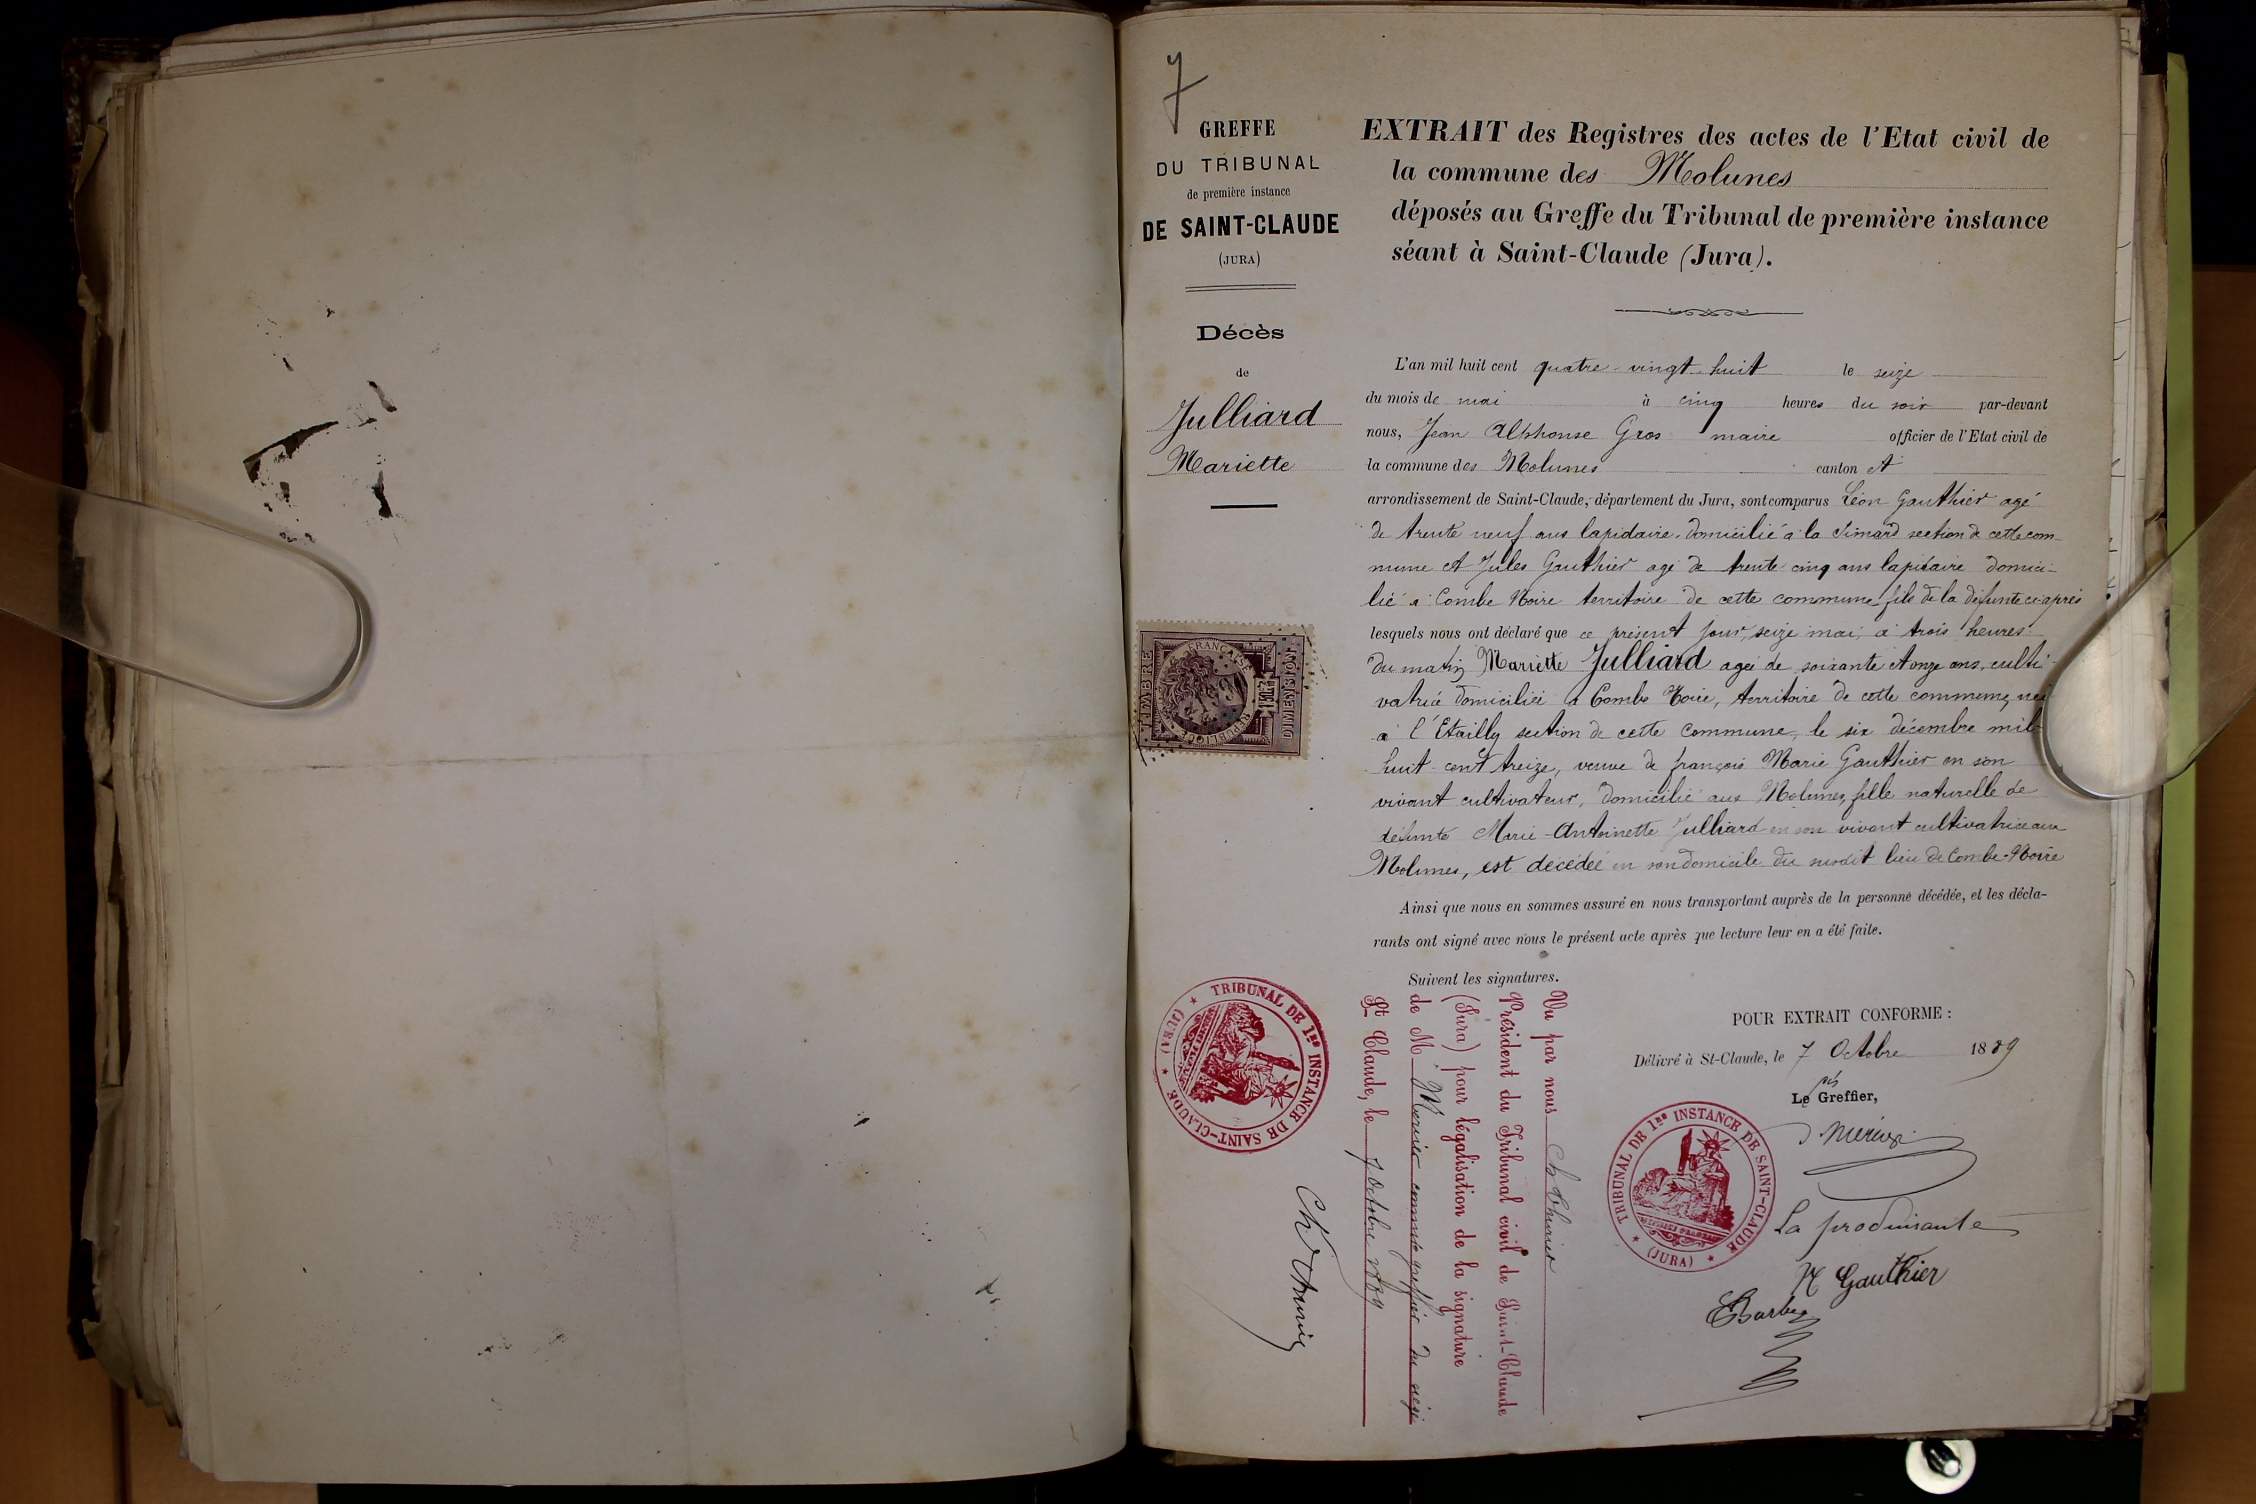 7
GREFFE
DU TRIBUNAL
de première instance
DE SAINT-CLAUDE
(JURA)
Décès
de
Julliard
Mariette
EXTRAIT des Registres des actes de l'Etat civil de
la commune des Molunes
déposés au Greffe du Tribunal de première instance
séant à Saint-Claude (Jura).
L'an mil huit cent quatre-vingt-huit le seize
du mois de mai à cinq heures du soir par-devant
nous, Jean Alphonse Gros maire officier de l'Etat civil de
la commune des Molunes canton et
arrondissement de Saint-Claude, département du Jura, sont comparus Léon Gauthier agé
de trente neuf ans lapidaire domicilié à la Simard section de cette com-
mune et Jules Gauthier agé de trente-cinq ans lapidaire domici-
lié à Combe Noire territoire de cette commune, fils de la défunte ci-après
lesquels nous ont déclaré que ce présent jour, seize mai, à trois heures
du matin Mariette Julliard agée de soixante et onze ans, culti-
vatrice domiciliée à Combe Noire, territoire de cette commune, née
à l'Etailly section de cette commune, le six décembre mil
huit-cent treize, veuve de françois Marie Gauthier en son
vivant cultivateur, domicilié aux Molunes, fille naturelle de
défunte Marie-Antoinette Julliard en son vivant cultivatrice aux
Molunes, est décédée en son domicile du susdit lieu de Combe-Noire
Ainsi que nous en sommes assuré en nous transportant auprès de la personne décédée, et les décla-
rants ont signé avec nous le présent acte après que lecture leur en a été faite.
Suivent les signatures.
POUR EXTRAIT CONFORME :
Délivré à St-Claude, le 7 Octobre 1889
Le Greffier,
La produisante
Gauthier
Barbe
Vu par nous
Président du Tribunal civil de Saint-Claude
(Jura) pour légalisation de la signature
de M. Mercier commis greffier du siège
St Claude, le 7 octobre 1889
TRIBUNAL DE 1RE INSTANCE DE SAINT-CLAUDE
(JURA)
TRIBUNAL DE 1RE INSTANCE DE SAINT-CLAUDE
(JURA)
TIMBRE
REPUBLIQUE FRANÇAISE
DIMENSION